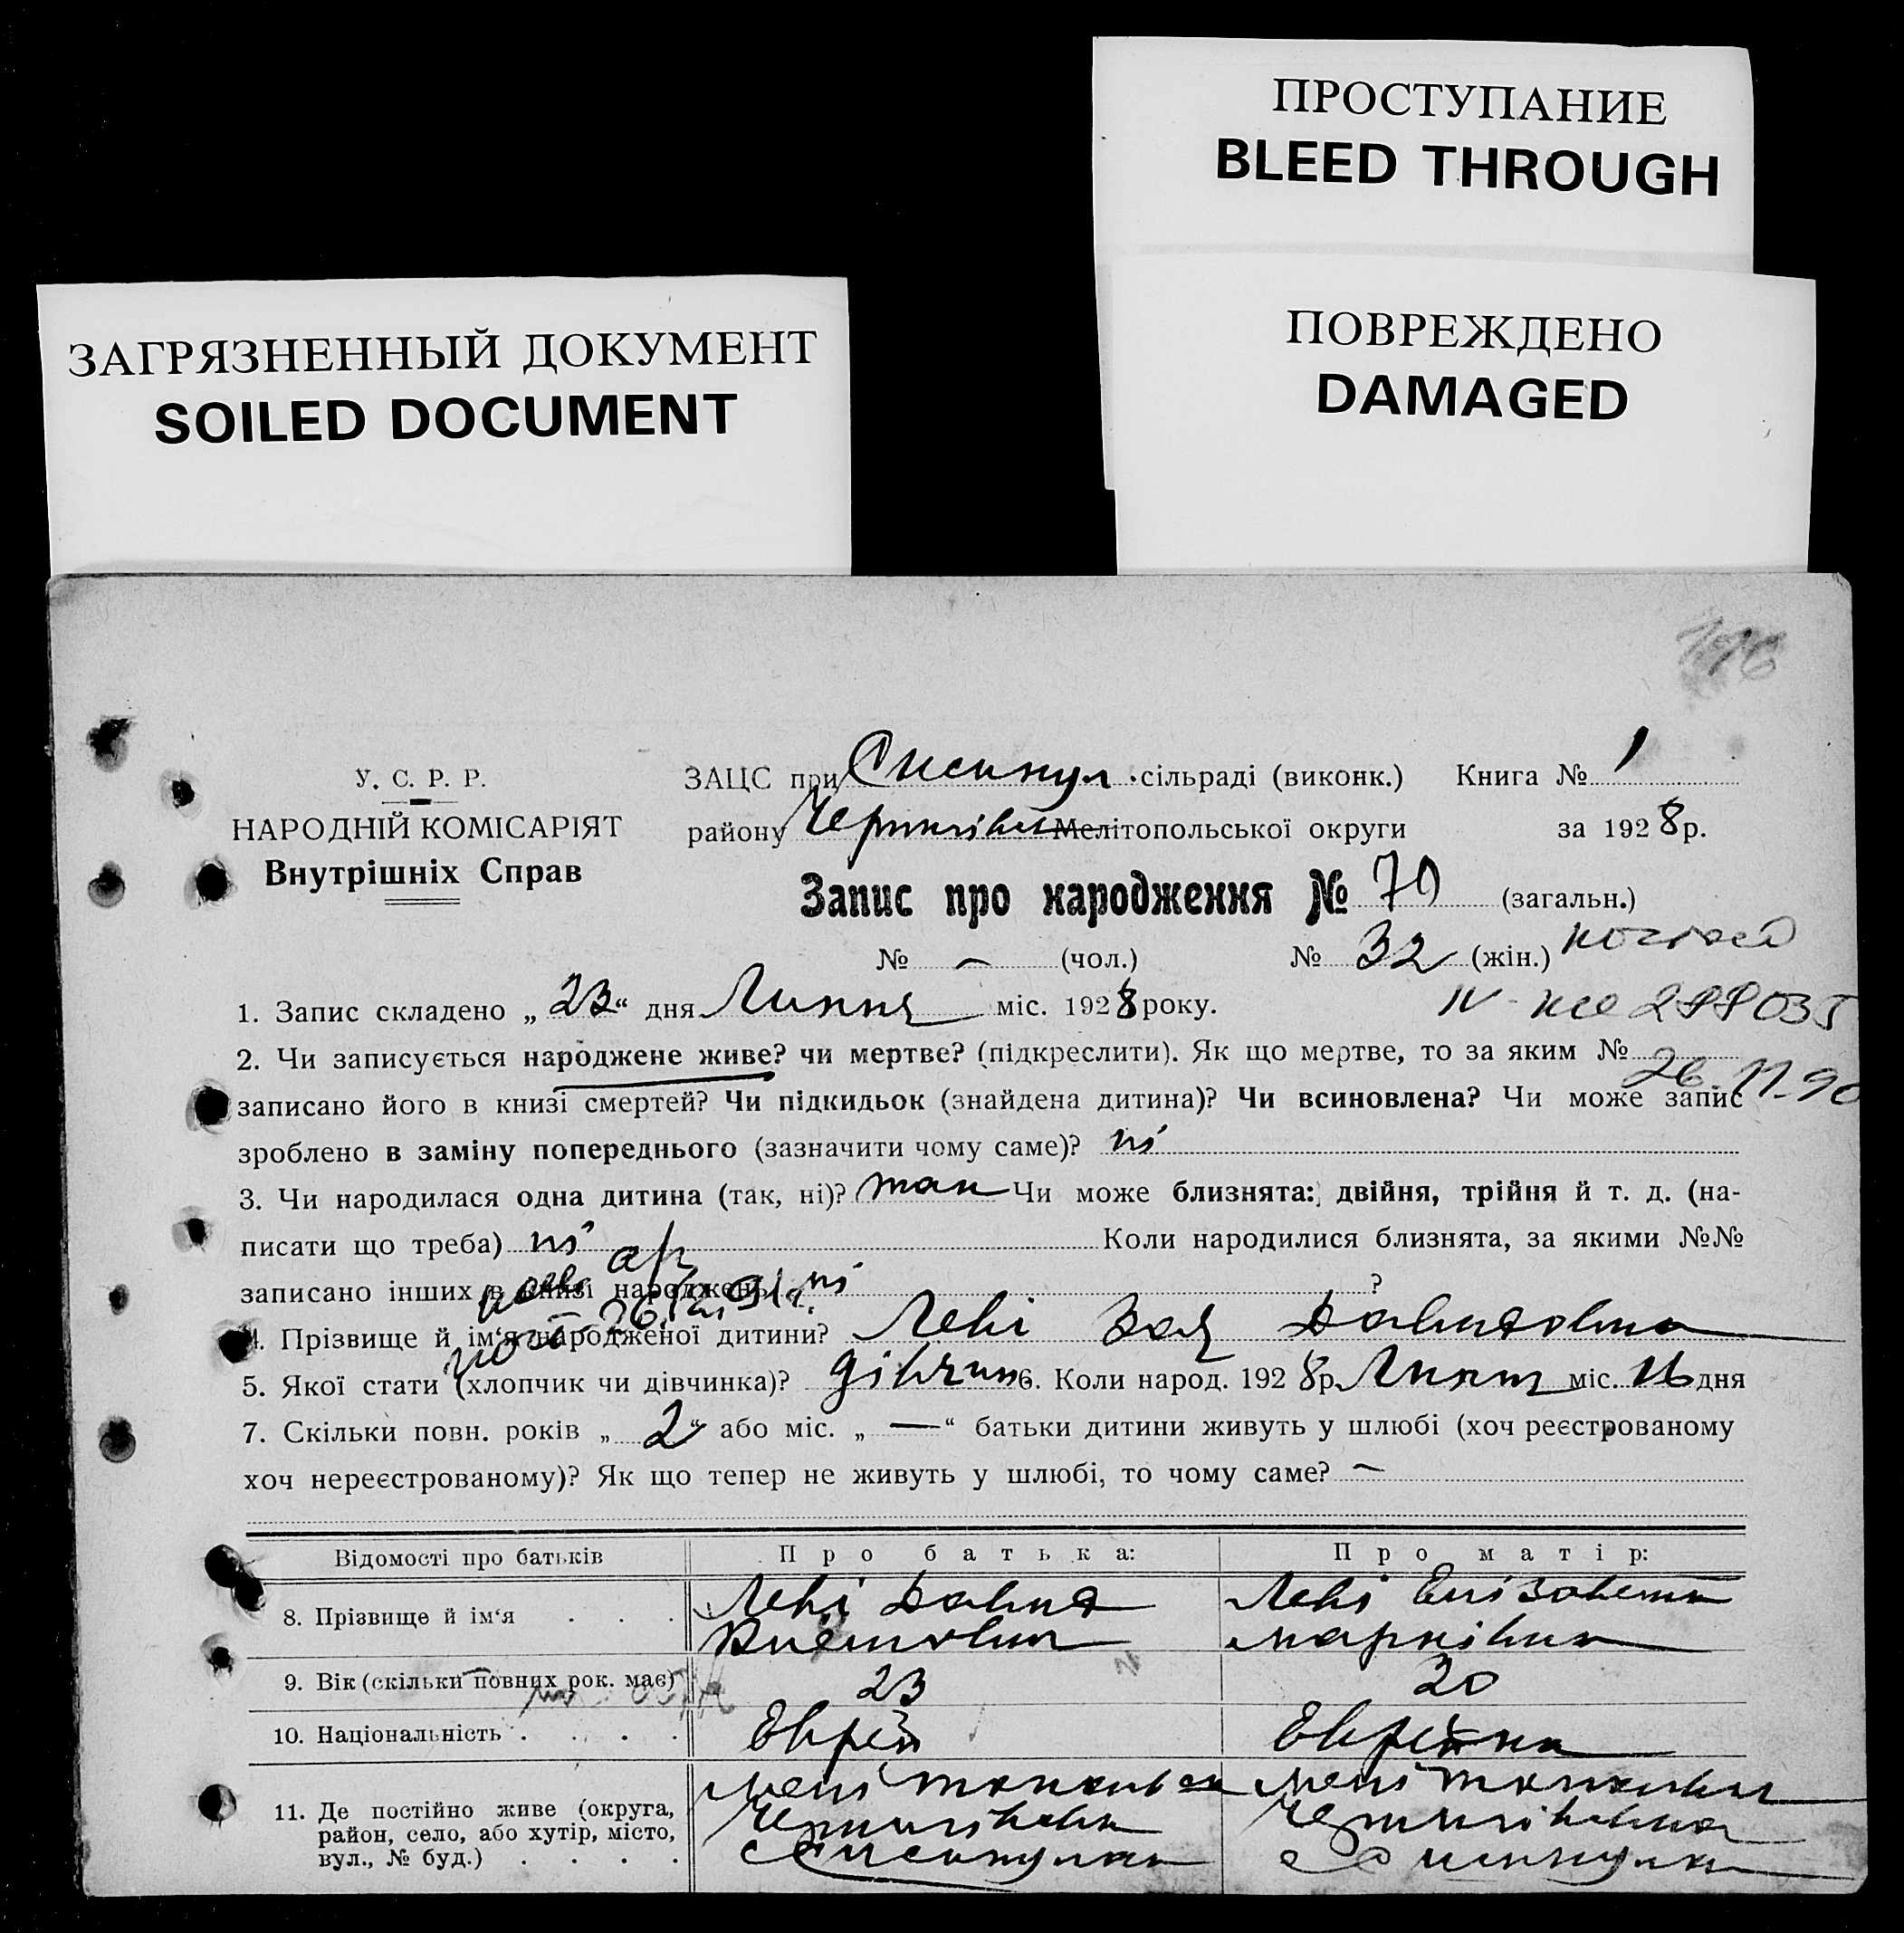 ПРОСТУПАНИЕ
BLEED THROUGH
ЗАГРЯЗНЕННЫЙ ДОКУМЕНТ
SOILED DOCUMENT
ПОВРЕЖДЕНО
DAMAGED
У. С. Р. Р.
НАРОДНІЙ КОМІСАРІЯТ
Внутрішніх Справ
ЗАЦС при сільраді (виконк.) Книга № 1
району Мелітопольської округи за 1928 р.
Запис про народження № 70 (загальн.)
№ — (чол.) № 32 (жін.)
1. Запис складено „23“ дня Липня міс. 1928 року.
2. Чи записується народжене живе? чи мертве? (підкреслити). Як що мертве, то за яким №
26.11.90
записано його в книзі смертей? Чи підкидьок (знайдена дитина)? Чи всиновлена? Чи може запис
зроблено в заміну попереднього (зазначити чому саме)? ні
3. Чи народилася одна дитина (так, ні)? так Чи може близнята: двійня, трійня й т. д. (на-
писати що треба) ні Коли народилися близнята, за якими №№
записано інших в книзі народжень ні ?
4. Прізвище й ім‘я народженої дитини? Леві Зоя Давидовна
5. Якої стати (хлопчик чи дівчинка)? дівчин 6. Коли народ. 1928 р. Липня міс. 16 дня
7. Скільки повн. років „2“ або міс. „—“ батьки дитини живуть у шлюбі (хоч реєстрованому
хоч нереєстрованому)? Як що тепер не живуть у шлюбі, то чому саме? —
Відомості про батьків Про батька: Про матір:
8. Прізвище й ім‘я Леві Давид Леві Єлізавета
Марківна
9. Вік (скільки повних рок. має) 23 20
10. Національність Еврей Еврейка
11. Де постійно живе (округа,
район, село, або хутір, місто,
вул., № буд.)